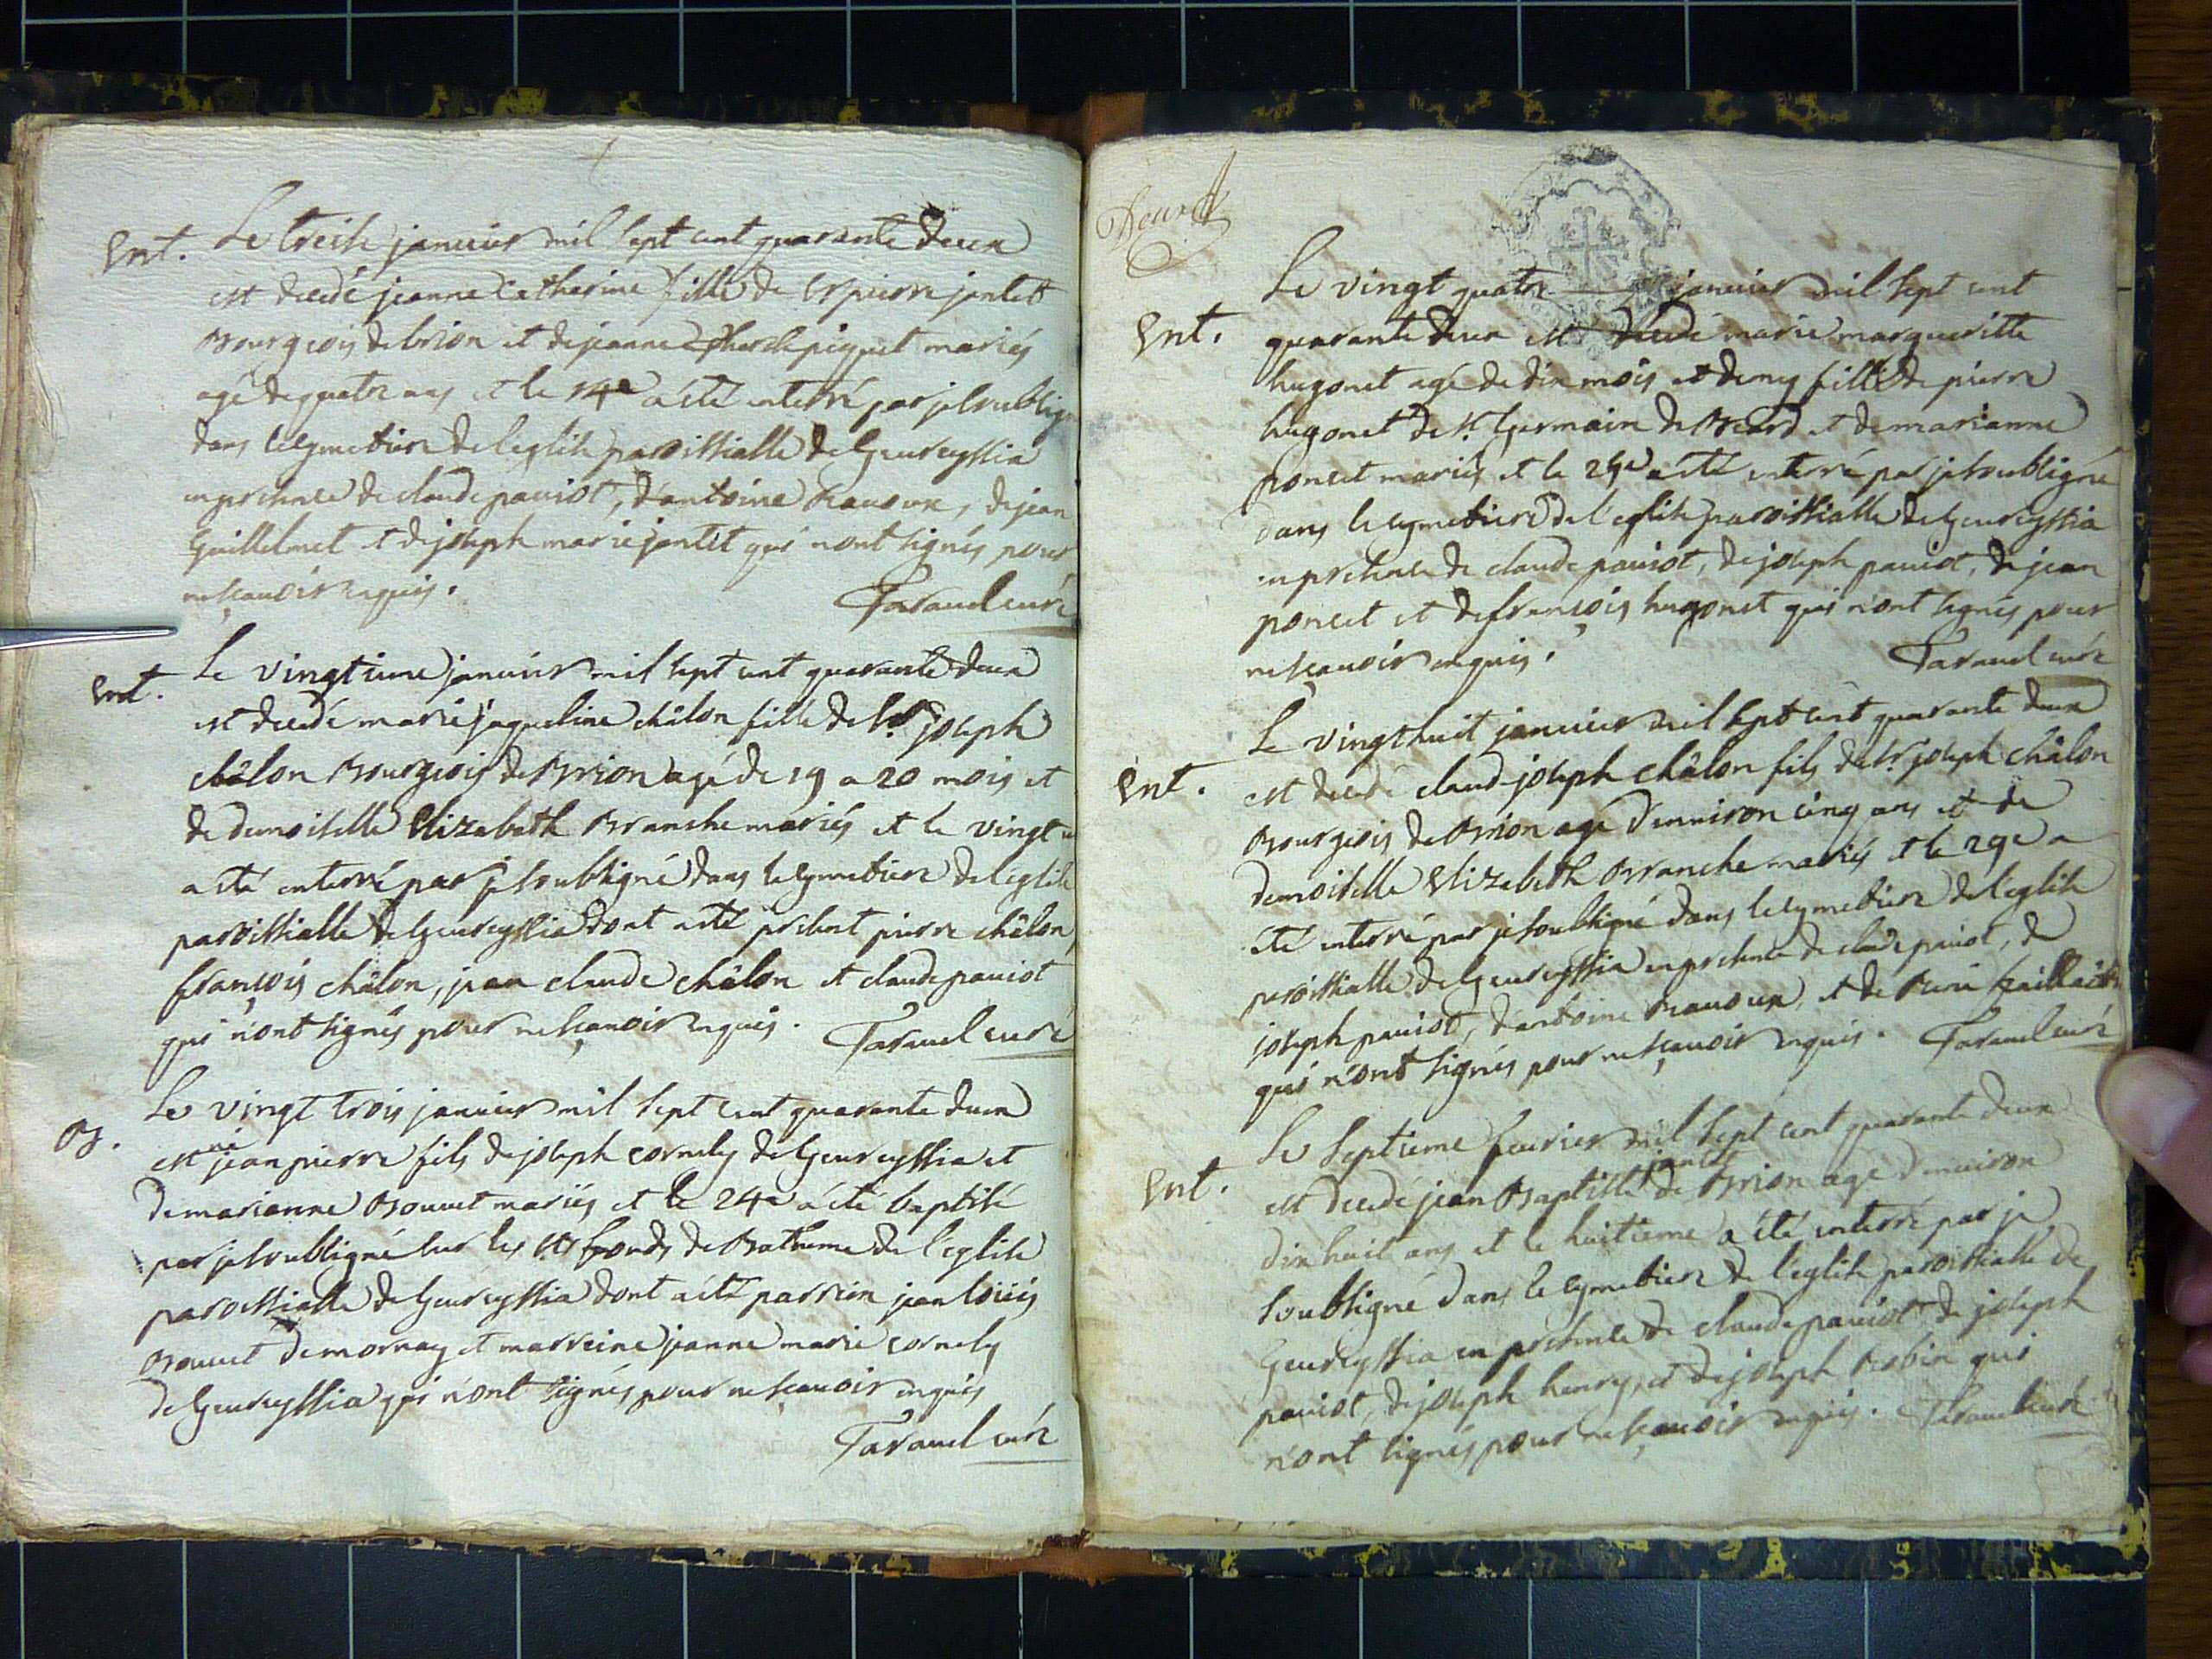 Ent. Le treise janvier mil sept cent quarante deux
est decedé jeanne Catherine fille de Sr pierre jantet
Bourgeois de brion et de jeanne piquet mariés
agé de quatre ans et le 14e a été enterré par je soubsigné
dans le cymetiere de l'eglise paroissialle de Geureyssia
en presence de claude paviot, d'antoine Ravoux, de jean
Guillelmet et de joseph marie jantet qui n'ont signés pour
ne sçavoir enquis.
Taravel curé
Ent. Le vingtieme janvier mil sept cent quarante deux
est decedé marie jaqueline châlon fille de Sr. joseph
châlon Bourgeois de Brion agé de 19 a 20 mois et
de demoiselle Elizabeth Branche mariés et le vingt un
a eté enterré par je soubsigné dans le cymetiere de l'eglise
paroissialle de Geureyssia dont a eté present pierre châlon,
françois châlon, jean claude châlon et claude paviot
qui n'ont signés pour ne sçavoir enquis. Taravel curé
B. Le vingt trois janvier mil sept cent quarante deux
est né jean pierre fils de joseph cornely de Geureyssia et
de marianne Bouvet mariés et le 24e a été baptisé
par je soubsigné sur les sts fonds de Batheme de l'eglise
paroissialle de Geureyssia dont a eté parrein jean loüis
Bouvet de mornay et marreine jeanne marie cornely
de Geureyssia qui n'ont signés pour ne sçavoir enquis
Taravel curé
Deux
Le vingt quatre janvier mil sept cent
Ent. quarante deux est decedé marie margueritte
hugonet agé de dix mois et demy fille de pierre
hugonet de st. Germain de Beard et de marianne
poncet mariés et le 25e a été enterré par je soubsigné
dans le cymetiere de l'eglise paroissialle de Geureyssia
en presence de claude paviot, de joseph paviot, de jean
poncet et de françois hugonet qui n'ont signés pour
ne sçavoir enquis. Taravel curé
Le vingt huit janvier mil sept cent quarante deux
Ent. est decedé claud joseph châlon fils de Sr. joseph châlon
Bourgeois de Brion agé d'environ cinq ans et de
demoiselle Elizabeth Branche mariés et le 29e a
été enterré par je soubsigné dans le cymetiere de l'eglise
paroissialle de Geureyssia en presence de claude paviot, de
joseph paviot, d'antoine Ravoux et de
qui n'ont signés pour ne sçavoir enquis. Taravel curé
Le septieme fevrier mil sept cent quarante deux
Ent. est decedé jean Baptiste jantet de Brion agé d'environ
dix huit ans et le huitieme a été enterré par je
soubsigné dans le cymetiere de l'eglise paroissialle de
Geureyssia en presence de claude paviot de joseph
paviot, de joseph henry, et de joseph Robin qui
n'ont signés pour ne sçavoir enquis. Taravel curé